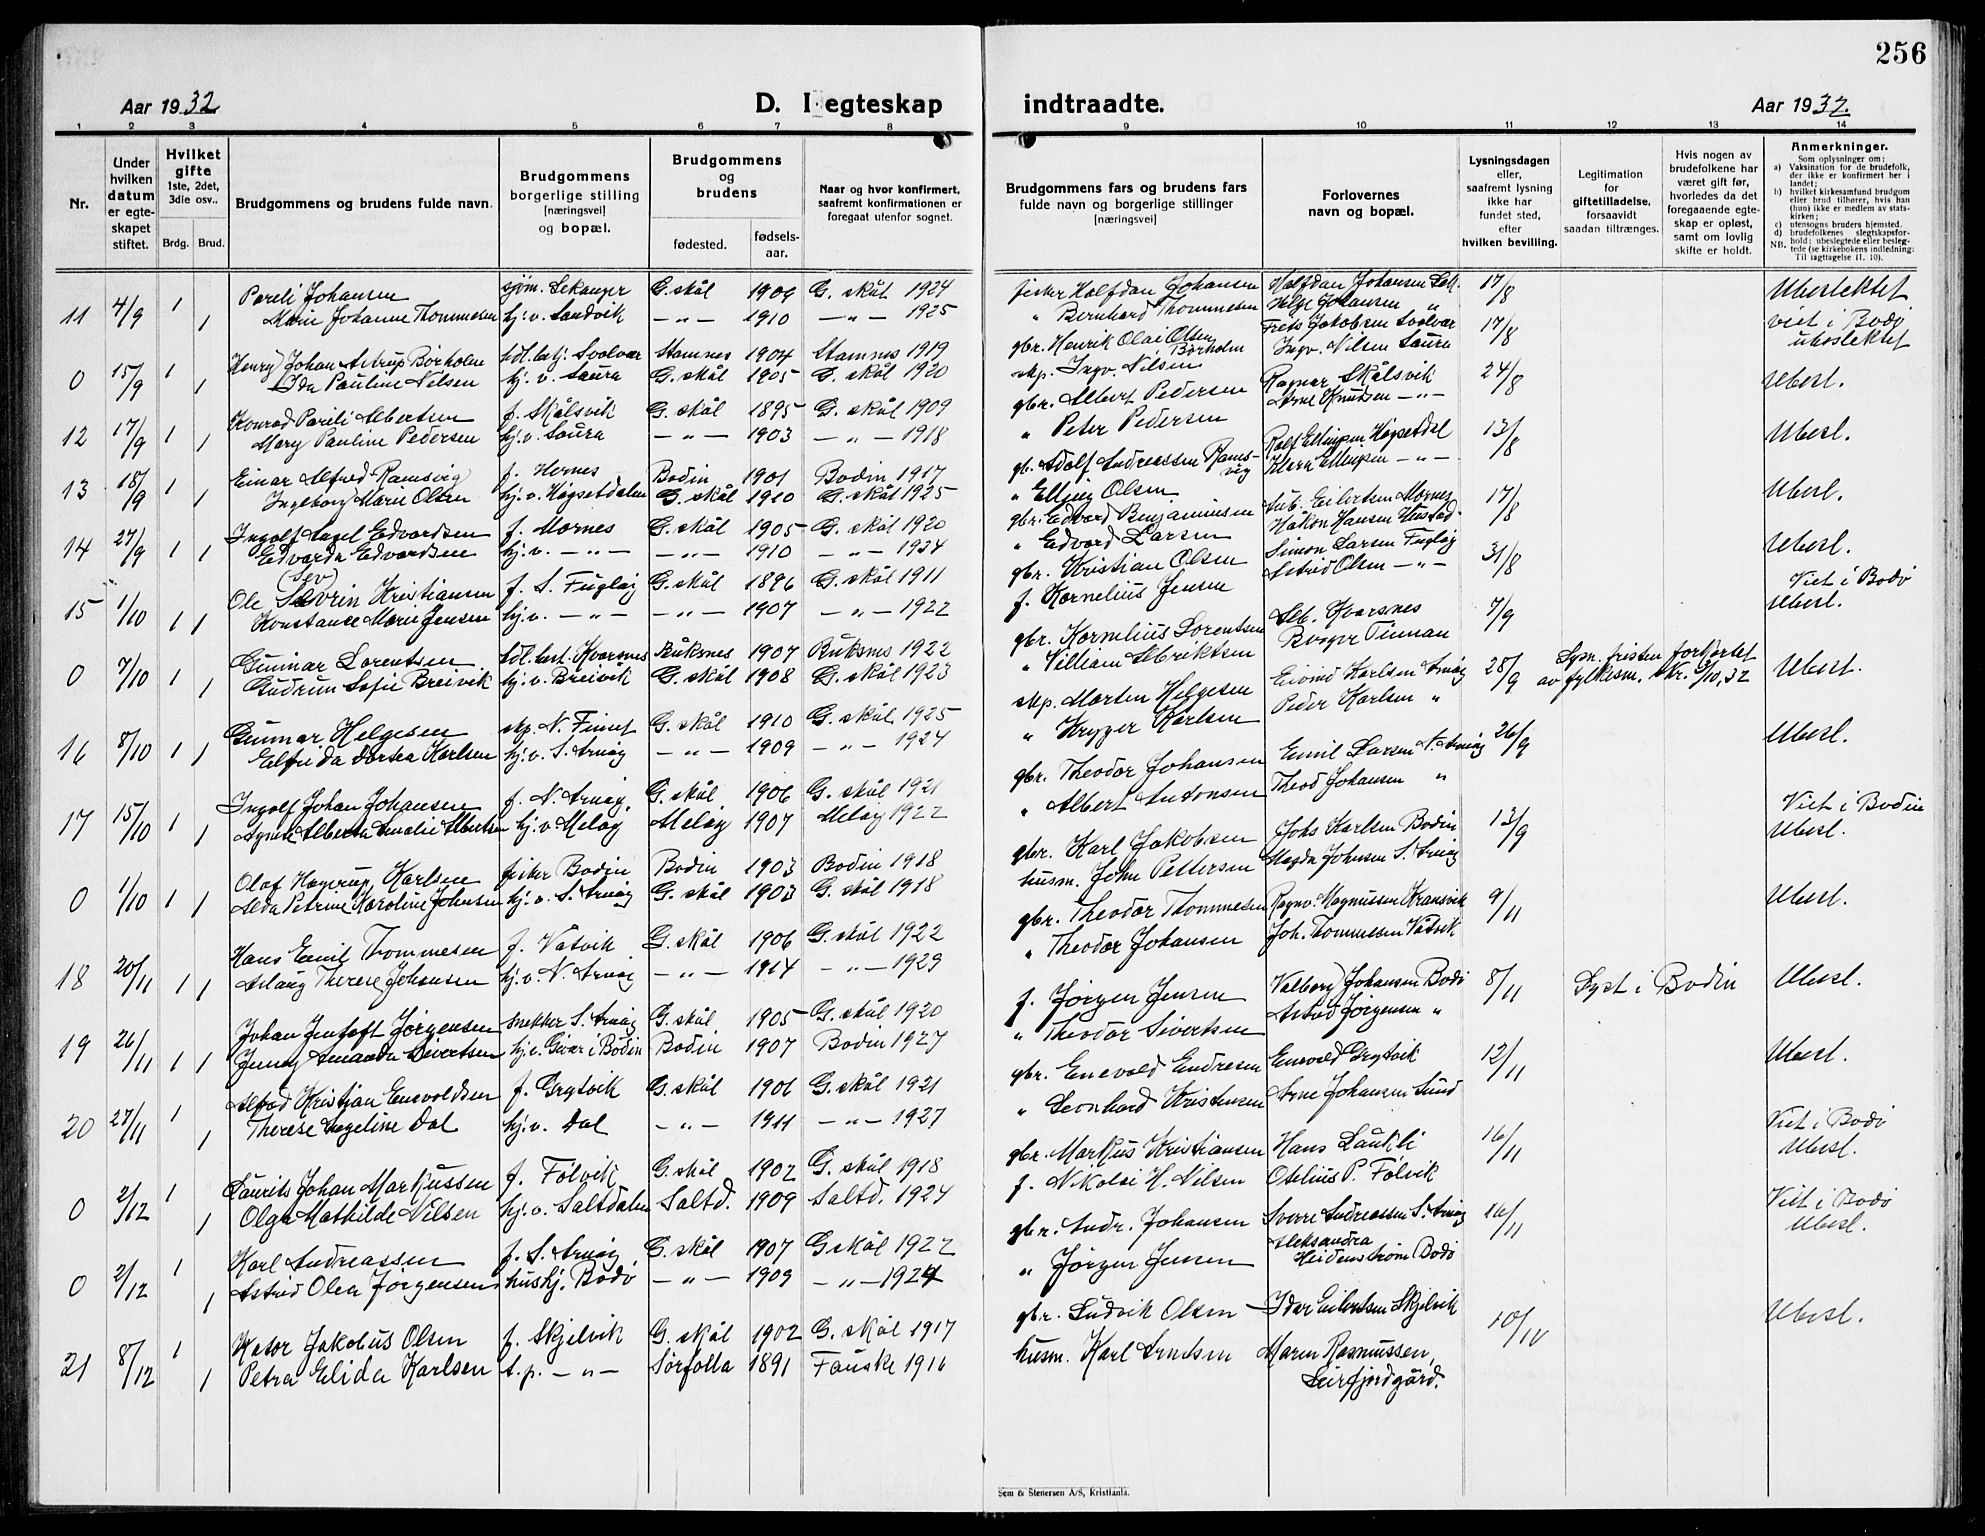 256
Aar 1932
D. I egteskap indtraadte.
Aar 1932.
1 2 3 4 5 6 7 8 9 10 11 12 13 14
Nr.
Under hvilken datum er egteskapet stiftet.
Hvilket gifte 1ste, 2det, 3die osv..
Brdg. Brud.
Brudgommens og brudens fulde navn.
Brudgommens borgerlige stilling [næringsvei] og bopæl.
Brudgommens og brudens
fødested. fødsels-aar.
Naar og hvor konfirmert, saafremt konfirmationen er foregaat utenfor sognet.
Brudgommens fars og brudens fars fulde navn og borgerlige stillinger [næringsvei]
Forlovernes navn og bopæl.
Lysningsdagen eller, saafremt lysning ikke har fundet sted, efter hvilken bevilling.
Legitimation for giftetilladelse, forsaavidt saadan tiltrænges.
Hvis nogen av brudefolkene har været gift før, hvorledes da det foregaaende egteskap er opløst, samt om lovlig skifte er holdt.
Anmerkninger.
Som oplysninger om:
a) Vaksination for de brudefolk, der ikke er konfirmert her i landet;
b) hvilket kirkesamfund brudgom eller brud tilhører, hvis han (hun) ikke er medlem av statskirken;
c) utensogns bruders hjemsted.
d) brudefolkenes slegtskapsforhold: ubeslegtede eller beslegtede (se kirkebokens indledning:
NB. Til iagttagelse 11, 10).
11 4/9 1 Pareli Johansen G. skål 1906 G. skål 1924 fisker Halfdan Johansen Halfdan Johansen 17/8 Ubeslektet
1 Marie Johanne Thommesen hj. v. Sandvik —„— 1910 —„— 1925 „ Bernhard Thommesen Helge Johansen „
0 15/9 1 Henry Johan Astrup Børholm Svolvær Stamnes 1904 Stamnes 1919 gbr. Henrik Olai Olsen Børholm Jakobsen Svolvær 17/8 viet i Bodø ubeslektet
1 Ida Pauline Nilsen hj. v. Saura G. skål 1905 G. skål 1920 skp. Ingv. Nilsen Ingv. Nilsen Saura
12 17/9 1 Konrad Pareli Albertsen f. Skålsvik G. skål 1895 G. skål 1909 gbr. Albert Pedersen Ragnar Skålsvik 24/8 Ubesl.
1 Mary Pauline Pedersen hj. v. Saura —„— 1903 —„— 1918 „ Peter Pedersen Arne Knudsen —„—
13 18/9 1 Einar Alfred Ramsvig f. Hernes Bodin 1901 Bodin 1917 gb. Adolf Andreassen Ramsvig Rolf Ellingsen Høgsetdal 13/8 Ubesl.
1 Ingeborg Marie Olsen hj. v. Høgsetdalen G. skål 1910 G. skål 1925 „ Elling Olsen Ellingsen —„—
14 27/9 1 Ingolf Edvardsen f. Mornes G. skål 1905 G. skål 1920 gbr. Edvard Benjaminsen Eilertsen Mornes 17/8 Ubesl.
1 Edvarda Edvardsen hj. v. —„— —„— 1910 —„— 1924 „ Edvard Larsen Håkon Hansen
15 1/10 1 Ole Severin (Sev) Kristiansen f. S. Fugløy G. skål 1896 G. skål 1911 gbr. Kristian Olsen Simon Larsen Fugløy 31/8 Ubesl.
1 Konstance Marie Jensen hj. v. —„— —„— 1907 —„— 1922 f. Kornelius Jensen Astrid Olsen —„—
0 7/10 1 Gunnar Lorentsen Kvarsnes Buksnes 1907 Buksnes 1922 gbr. Kornelius Lorentsen Kvarsnes 7/9 Viet i Bodø Ubesl.
1 Gudrun Sofie Breivik hj. v. Breivik G. skål 1908 G. skål 1923 „ Villiam Albriktsen
16 8/10 1 Gunnar Helgesen skp. N. G. skål 1910 G. skål 1925 skp. Morten Helgesen Eivind Karlsen Arnøy 28/9 Lysn. fristen forkortet av fylkesm. Skr. 5/10, 32 Ubesl.
1 Elfrida Dortea Karlsen hj. v. S. Arnøy —„— 1909 —„— 1924 „ Kryger Karlsen Peder Karlsen „
17 15/10 1 Ingolf Johan Johansen f. N. Arnøy. G. skål 1906 G. skål 1921 gbr. Theodor Johansen Emil Larsen N. Arnøy 26/9 Ubesl.
1 Agnete Alberta Amalie Albertsen hj. v. Meløy Meløy 1907 Meløy 1922 „ Albert Antonsen Theod Johansen „
0 1/10 1 Olaf Hagerup Karlsen fisker Bodin Bodin 1903 Bodin 1918 gbr. Karl Jakobsen Johs Karlsen Bodin 13/9 Viet i Bodin Ubesl.
1 Alda Petrine Karoline Johnsen hj. v. S. Arnøy G. skål 1903 G. skål 1918 husm. John Pettersen Magda Johnsen S. Arnøy
18 20/11 1 Hans Emil Thommesen f. Våtvik G. skål 1906 G. skål 1922 gbr. Theodor Thommesen Ragnv. Magnussen Kransvik 9/11 Ubesl.
1 Aslaug Therese Johansen hj. v. N. Arnøy —„— 1914 —„— 1929 „ Theodor Johansen Joh. Thommessen Våtvik
19 26/11 1 Johan Jentoft Jørgensen snekker S. Arnøy G. skål 1905 G. skål 1920 f. Jørgen Jensen Valborg Johansen Bodø 8/11 Lyst i Bodin Ubesl.
1 Jenny Amanda Sivertsen hj. v. Givær i Bodin Bodin 1907 Bodin 1927 „ Theodor Sivertsen Astrid Jørgensen „
20 27/11 1 Alfred Kristian Enevoldsen f. Grytvik G. skål 1906 G. skål 1921 gbr. Enevold Endresen Enevold Grytvik 12/11 Ubesl.
1 Therese Angeline Dal hj. v. Dal —„— 1911 —„— 1927 „ Leonhard Kristensen Arne Johansen Sund
0 2/12 1 Laurits Johan Markussen f. Følvik G. skål 1902 G. skål 1918 gbr. Markus Kristiansen Hans Laukli 16/11 Viet i Bodø Ubesl.
1 Olga Mathilde Nilsen hj. v. Saltdalen Saltd. 1909 Saltd. 1924 f. Nikolai H. Nilsen Otelius P. Følvik
0 2/12 1 Karl Andreassen f. S. Arnøy G. skål 1907 G skål 1922 gbr. Andr. Johansen Sverre Andreassen S. Arnøy 16/11 Viet i Bodø Ubesl.
1 Astrid Olea Jørgensen hushj. Bodø —„— 1909 —„— 1924 „ Jørgen Jensen Aleksandra Heidenstrøm Bodø
21 8/12 1 Jakobus Olsen f. Skjelvik G. skål 1902 G. skål 1917 gbr. Ludvik Olsen Idar Eilertsen Skjelvik 10/11 Ubesl.
1 Petra Elida Karlsen t. p. —„— Sørfolla 1891 Fauske 1916 husm. Karl Arntsen Maren Rasmussen Leirfjordgård.
Sem & Stenersen A/S, Kristiania.